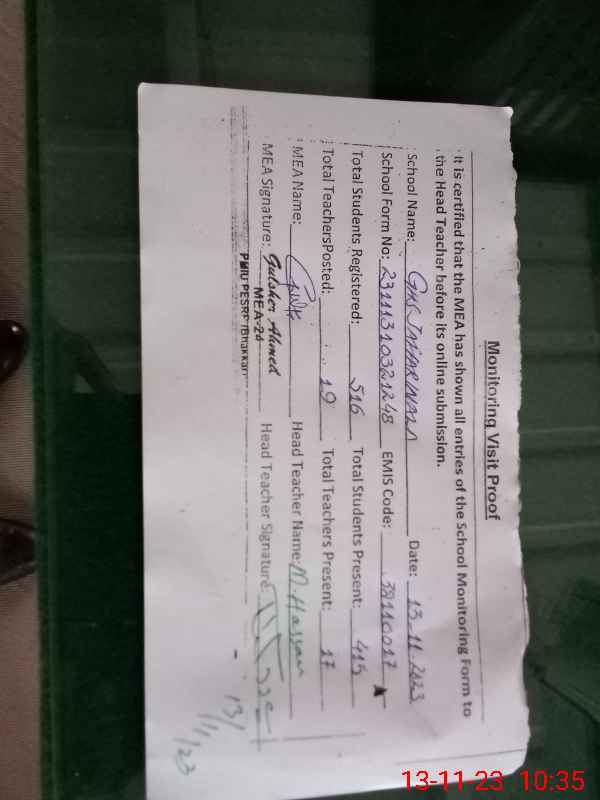 Monitoring Visit Proof
It is certified that the MEA has shown all entries of the School Monitoring Form to
the Head Teacher before its online submission.
School Name: GHS JAFFARINALA Date: 13-11-2023
School Form No: 23111310321248 EMIS Code: 38110017
Total Students Registered: 516 Total Students Present: 415
Total TeachersPosted: 19 Total Teachers Present: 17
MEA Name: Head Teacher Name: M. Hassan
MEA Signature: Gulsher Ahmed Head Teacher Signature:
MEA-24
PMIU PESRP (Bhakkar)
13/11/23
13-11-23 10:35